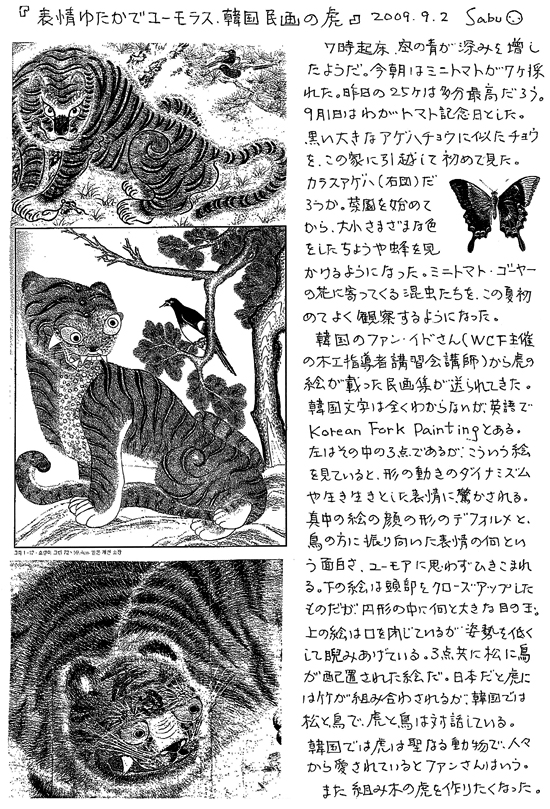 『表情ゆたかでユーモラス、韓国民画の虎』 2009.9.2 Sabu
7時起床、窓の青が深みを増し
たようだ。今朝はミニトマトが7ヶ採
れた。昨日の25ヶは多分最高だろう。
9月1日はわがトマト記念日とした。
黒い大きなアゲハチョウに似たチョウ
を、この家に引越して初めて見た。
カラスアゲハ(右図)だ
ろうか。菜園を始めて
から、大小さまざまな色
をしたちょうや蜂を見
かけるようになった。ミニトマト・ゴーヤー
の花に寄ってくる昆虫たちを、この夏初
めてよく観察するようになった。
韓国のファン・イドさん(WCT主催
の木工指導者講習会講師)から虎の
絵が載った民画集が送られてきた。
韓国文字は全くわからないが、英語で
Korean Fork Paintingとある。
左はその中の3点であるが、こういう絵
を見ていると、形の動きのダイナミズム
や生き生きとした表情に驚かされる。
真中の絵の顔の形のデフォルメと、
鳥の方に振り向いた表情の何とい
う面白さ、ユーモアに思わずひきこまれ
る。下の絵は頭部をクローズアップした
ものだが円形の中に何と大きな目の玉。
上の絵は口を閉じているが姿勢を低く
して睨みあげている。3点共に松に鳥
が配置された絵だ。日本だと虎に
は竹が組み合わされるが、韓国では
松と鳥で、虎と鳥は対話している。
韓国では虎は聖なる動物で、人々
から愛されているとファンさんはいう。
また組み木の虎を作りたくなった。